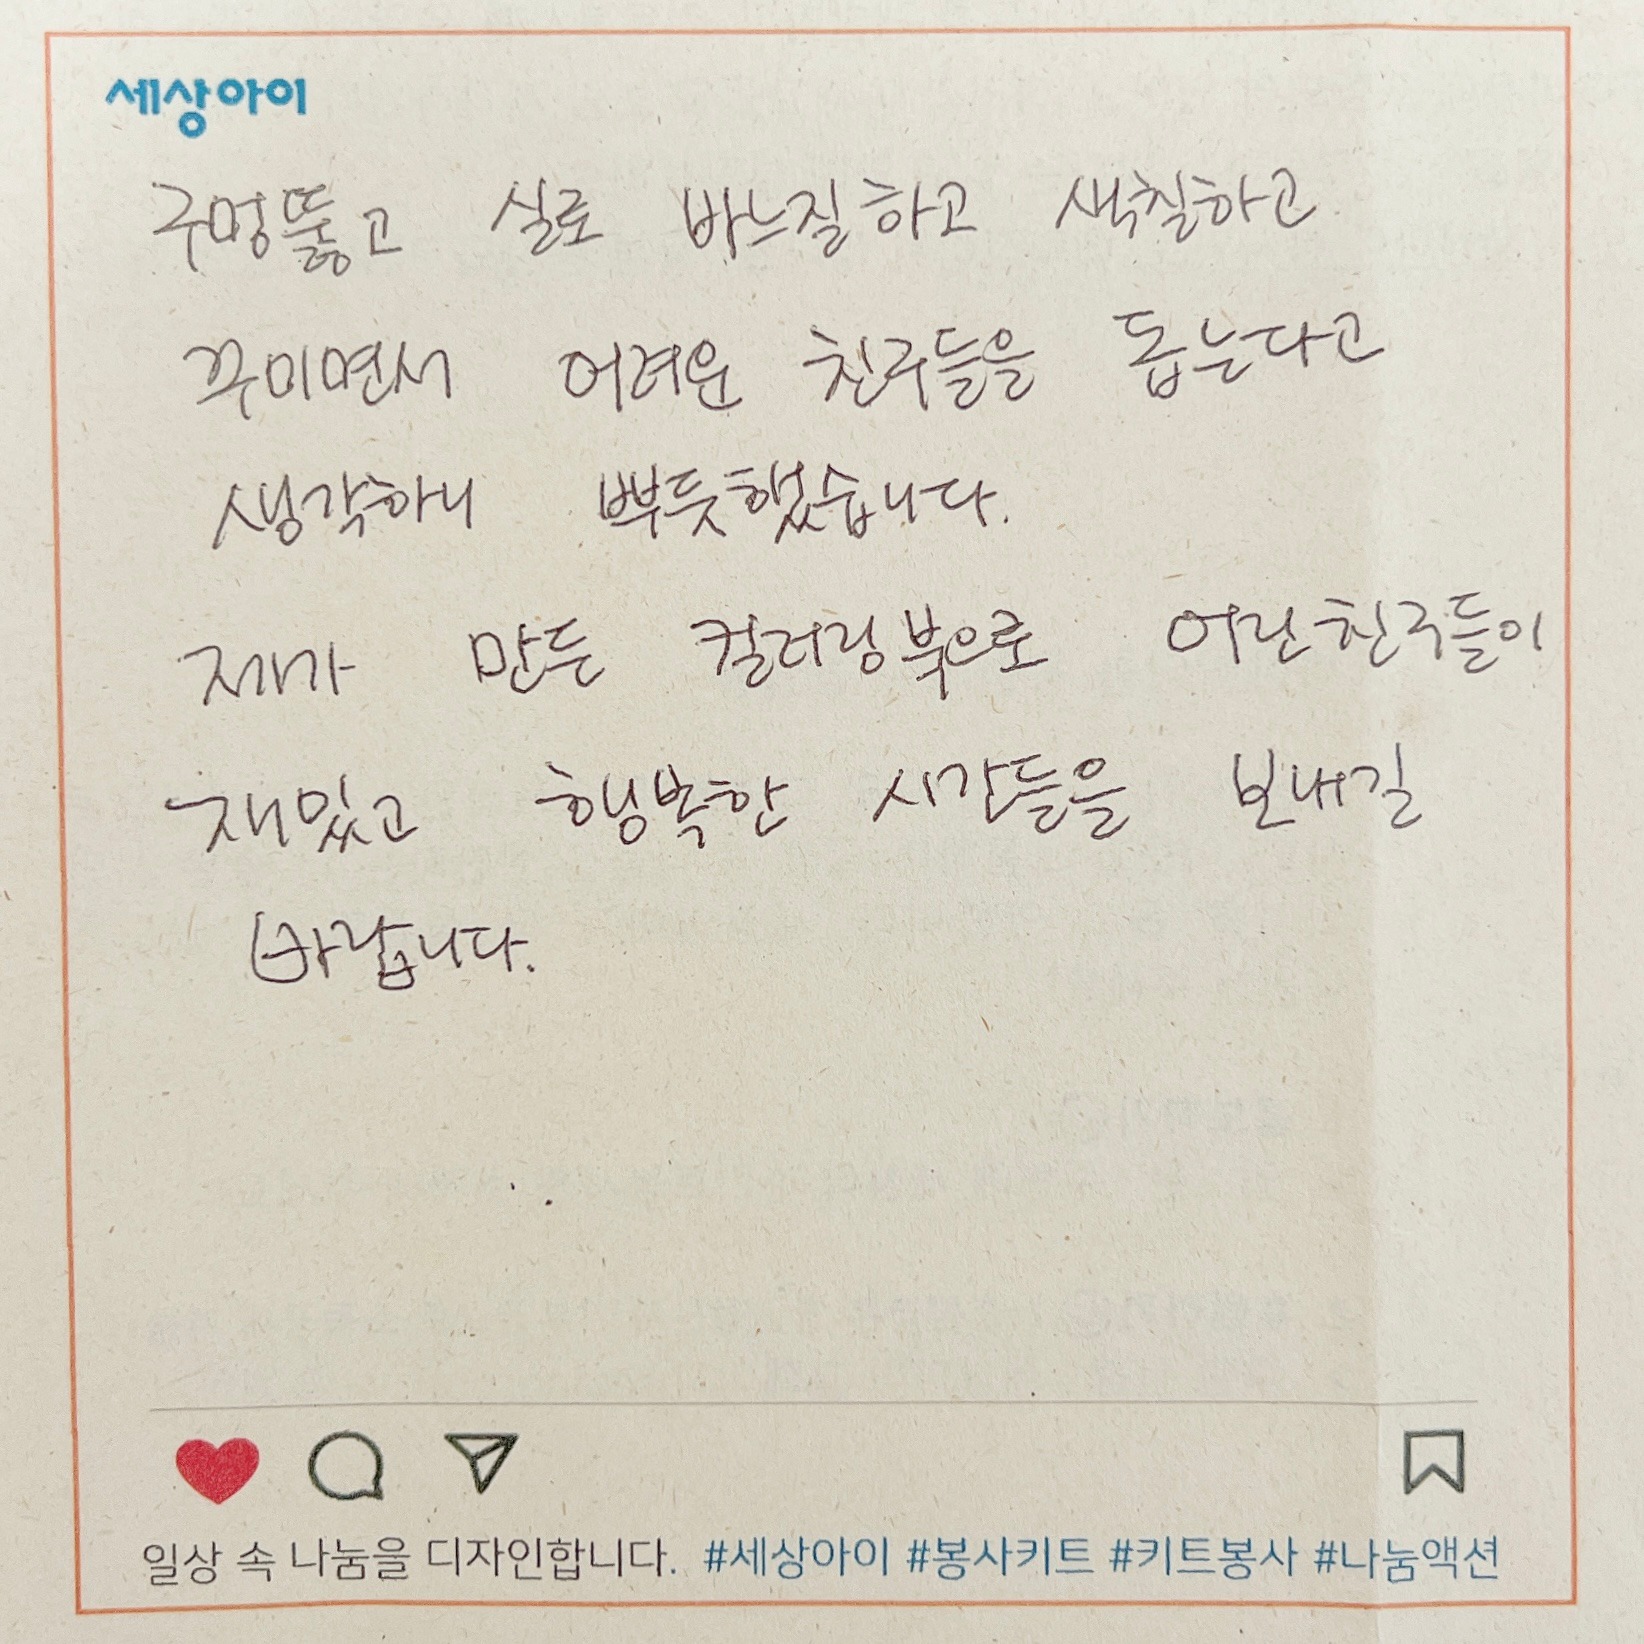 세상아이
구멍뚫고 실로 바느질하고 색칠하고
꾸미면서 어려운 친구들을 돕는다고
생각하니 뿌듯했습니다.
제가 만든 컬러링북으로 어린친구들이
재밌고 행복한 시간들을 보내길
바랍니다.
일상 속 나눔을 디자인합니다. #세상아이 #봉사키트 #키트봉사 #나눔액션